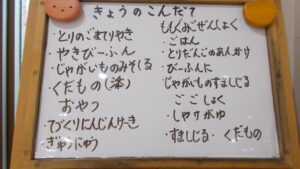 きょうのこんだて
・とりのごまてりやき
・やきびーふん
・じゃがいものみそしる
・くだもの(添)
おやつ
・てづくりにんじんけーき
・ぎゅうにゅう
ももぐみごぜんしょく
・ごはん
・とりだんごのあんかけ
・びーふんに
・じゃがいものすましじる
ごごしょく
・しゃけがゆ
・すましじる ・くだもの